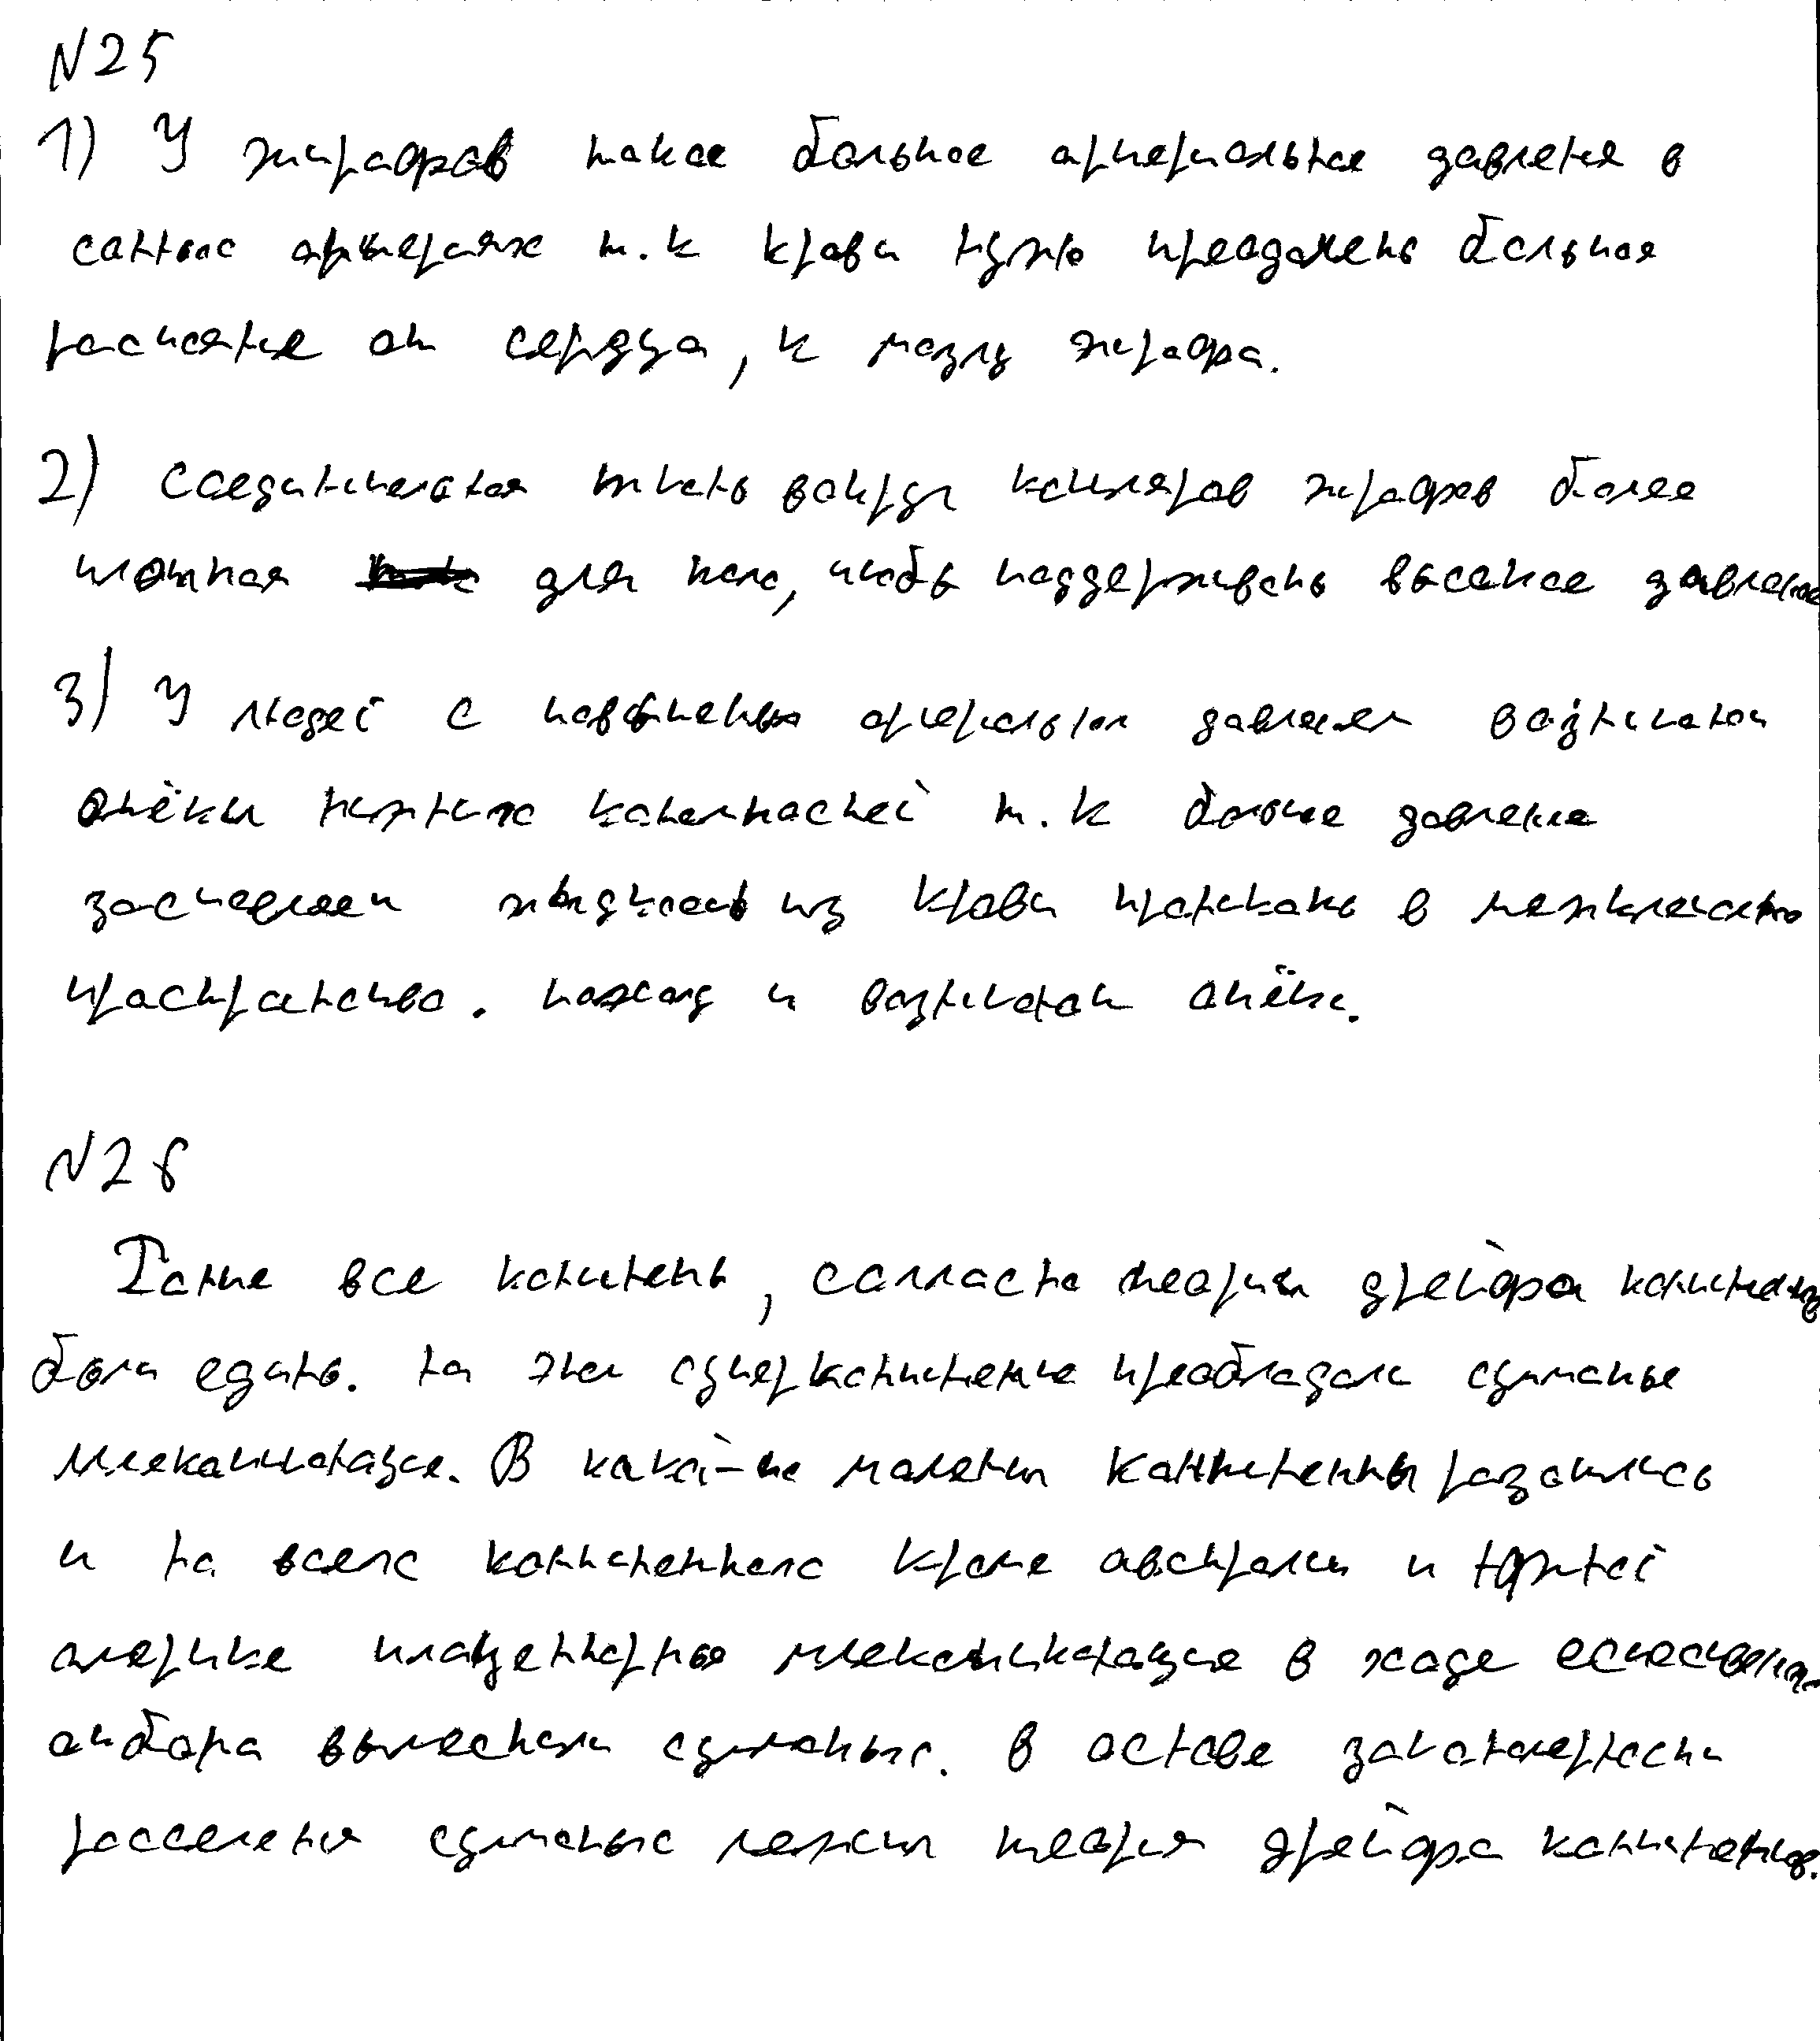 N25
1) У жирафов такое большое артериальное давление в
сонных артериях т.к крови нужно преодолеть большое
расстояние от сердца, к мозгу жирафа.
2) Соединительная ткань вокруг капиляров жирафов более
плотная для того, чтобы поддерживать высокое давление
3) У людей с повышенным артериальным давлением возникают
отёки нижних конечностей т.к большое давление
заставляет жидкость из крови протекать в межклеточное
пространство. поэтому и возникают отёки.
N26
Ранее все континенты, согласно теории дрейфа континентов
были едины. на этом суперконтиненте преобладали сумчатые
млекопитающие. В какой-то момент континенты разошлись
и на всех континентах кроме австралии и южной
америке плацентарные млекопитающие в ходе естественного
отбора вытеснили сумчатых. В основе закономерности
расселения сумчатых лежит теория дрейфа континентов.